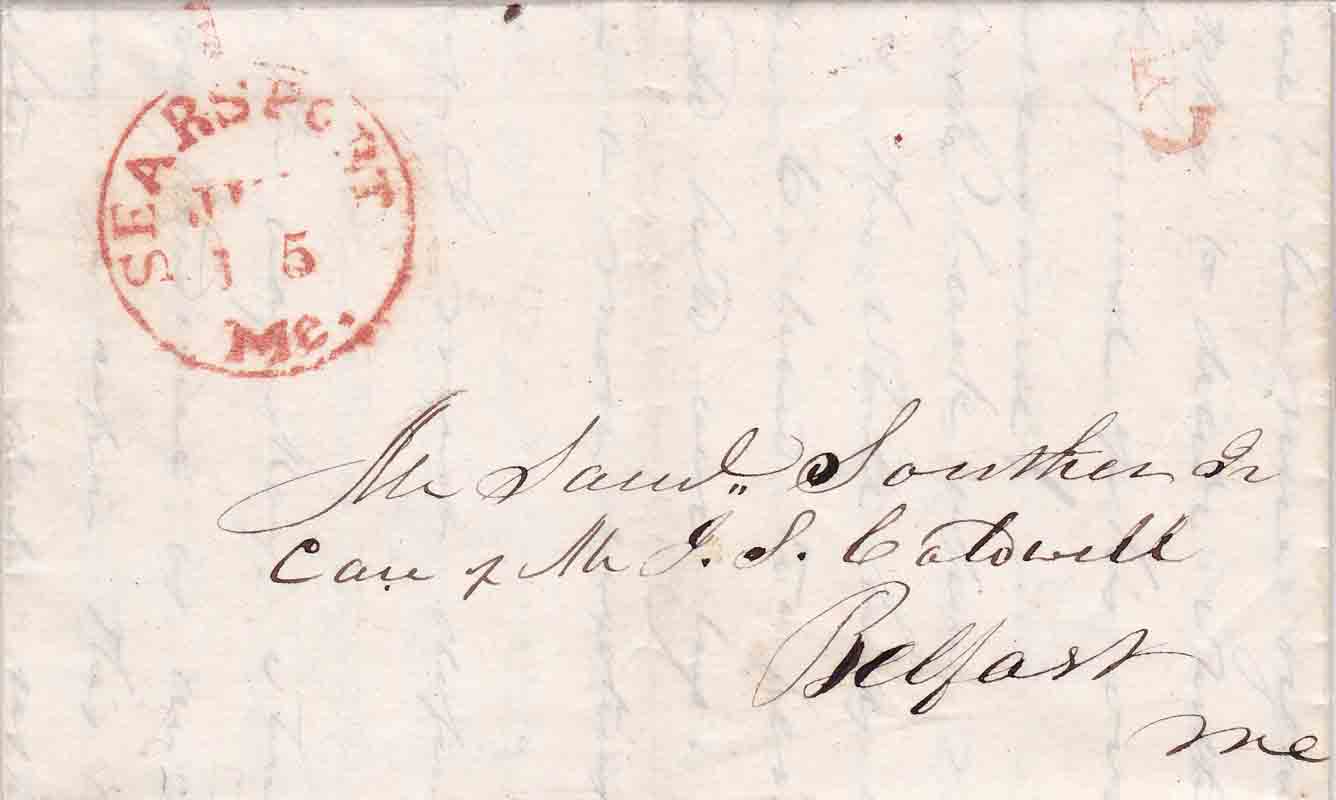 SEARSPORT
15
Me.
5
Mr Saml. Souther Jr
Care of Mr J. S. Caldwell
Belfast
Me